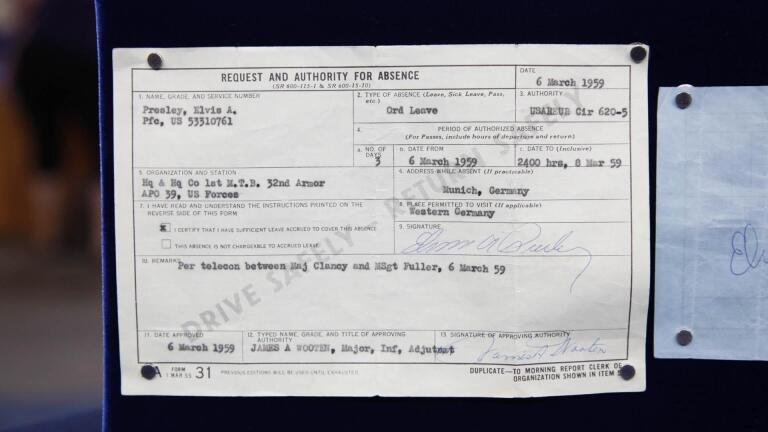 REQUEST AND AUTHORITY FOR ABSENCE
(SR 600-115-1 & SR 600-15-10)
DATE
6 March 1959
1. NAME, GRADE, AND SERVICE NUMBER
Presley, Elvis A.
Pfc, US 53310761
2. TYPE OF ABSENCE (Leave, Sick Leave, Pass, etc.)
Ord Leave
3. AUTHORITY
USAREUR Cir 620-5
4. PERIOD OF AUTHORIZED ABSENCE
(For Passes, include hours of departure and return)
a. NO. OF DAYS
3
b. DATE FROM
6 March 1959
c. DATE TO (Inclusive)
2400 hrs, 8 Mar 59
5. ORGANIZATION AND STATION
Hq & Hq Co 1st M.T.B. 32nd Armor
APO 39, US Forces
ADDRESS WHILE ABSENT (If practicable)
Munich, Germany
7. I HAVE READ AND UNDERSTAND THE INSTRUCTIONS PRINTED ON THE
REVERSE SIDE OF THIS FORM
x I CERTIFY THAT I HAVE SUFFICIENT LEAVE ACCRUED TO COVER THIS ABSENCE
THIS ABSENCE IS NOT CHARGEABLE TO ACCRUED LEAVE.
8. PLACE PERMITTED TO VISIT (If applicable)
Western Germany
9. SIGNATURE
Elvis A Presley
10. REMARKS
Per telecon between Maj Clancy and MSgt Fuller, 6 March 59
DRIVE SAFELY - RETURN SAFELY
11. DATE APPROVED
6 March 1959
12. TYPED NAME, GRADE, AND TITLE OF APPROVING AUTHORITY
JAMES A WOOTEN, Major, Inf, Adjutnat
13. SIGNATURE OF APPROVING AUTHORITY
James A Wooten
DA FORM 1 MAR 55 31
PREVIOUS EDITIONS WILL BE USED UNTIL EXHAUSTED.
DUPLICATE—TO MORNING REPORT CLERK OF
ORGANIZATION SHOWN IN ITEM